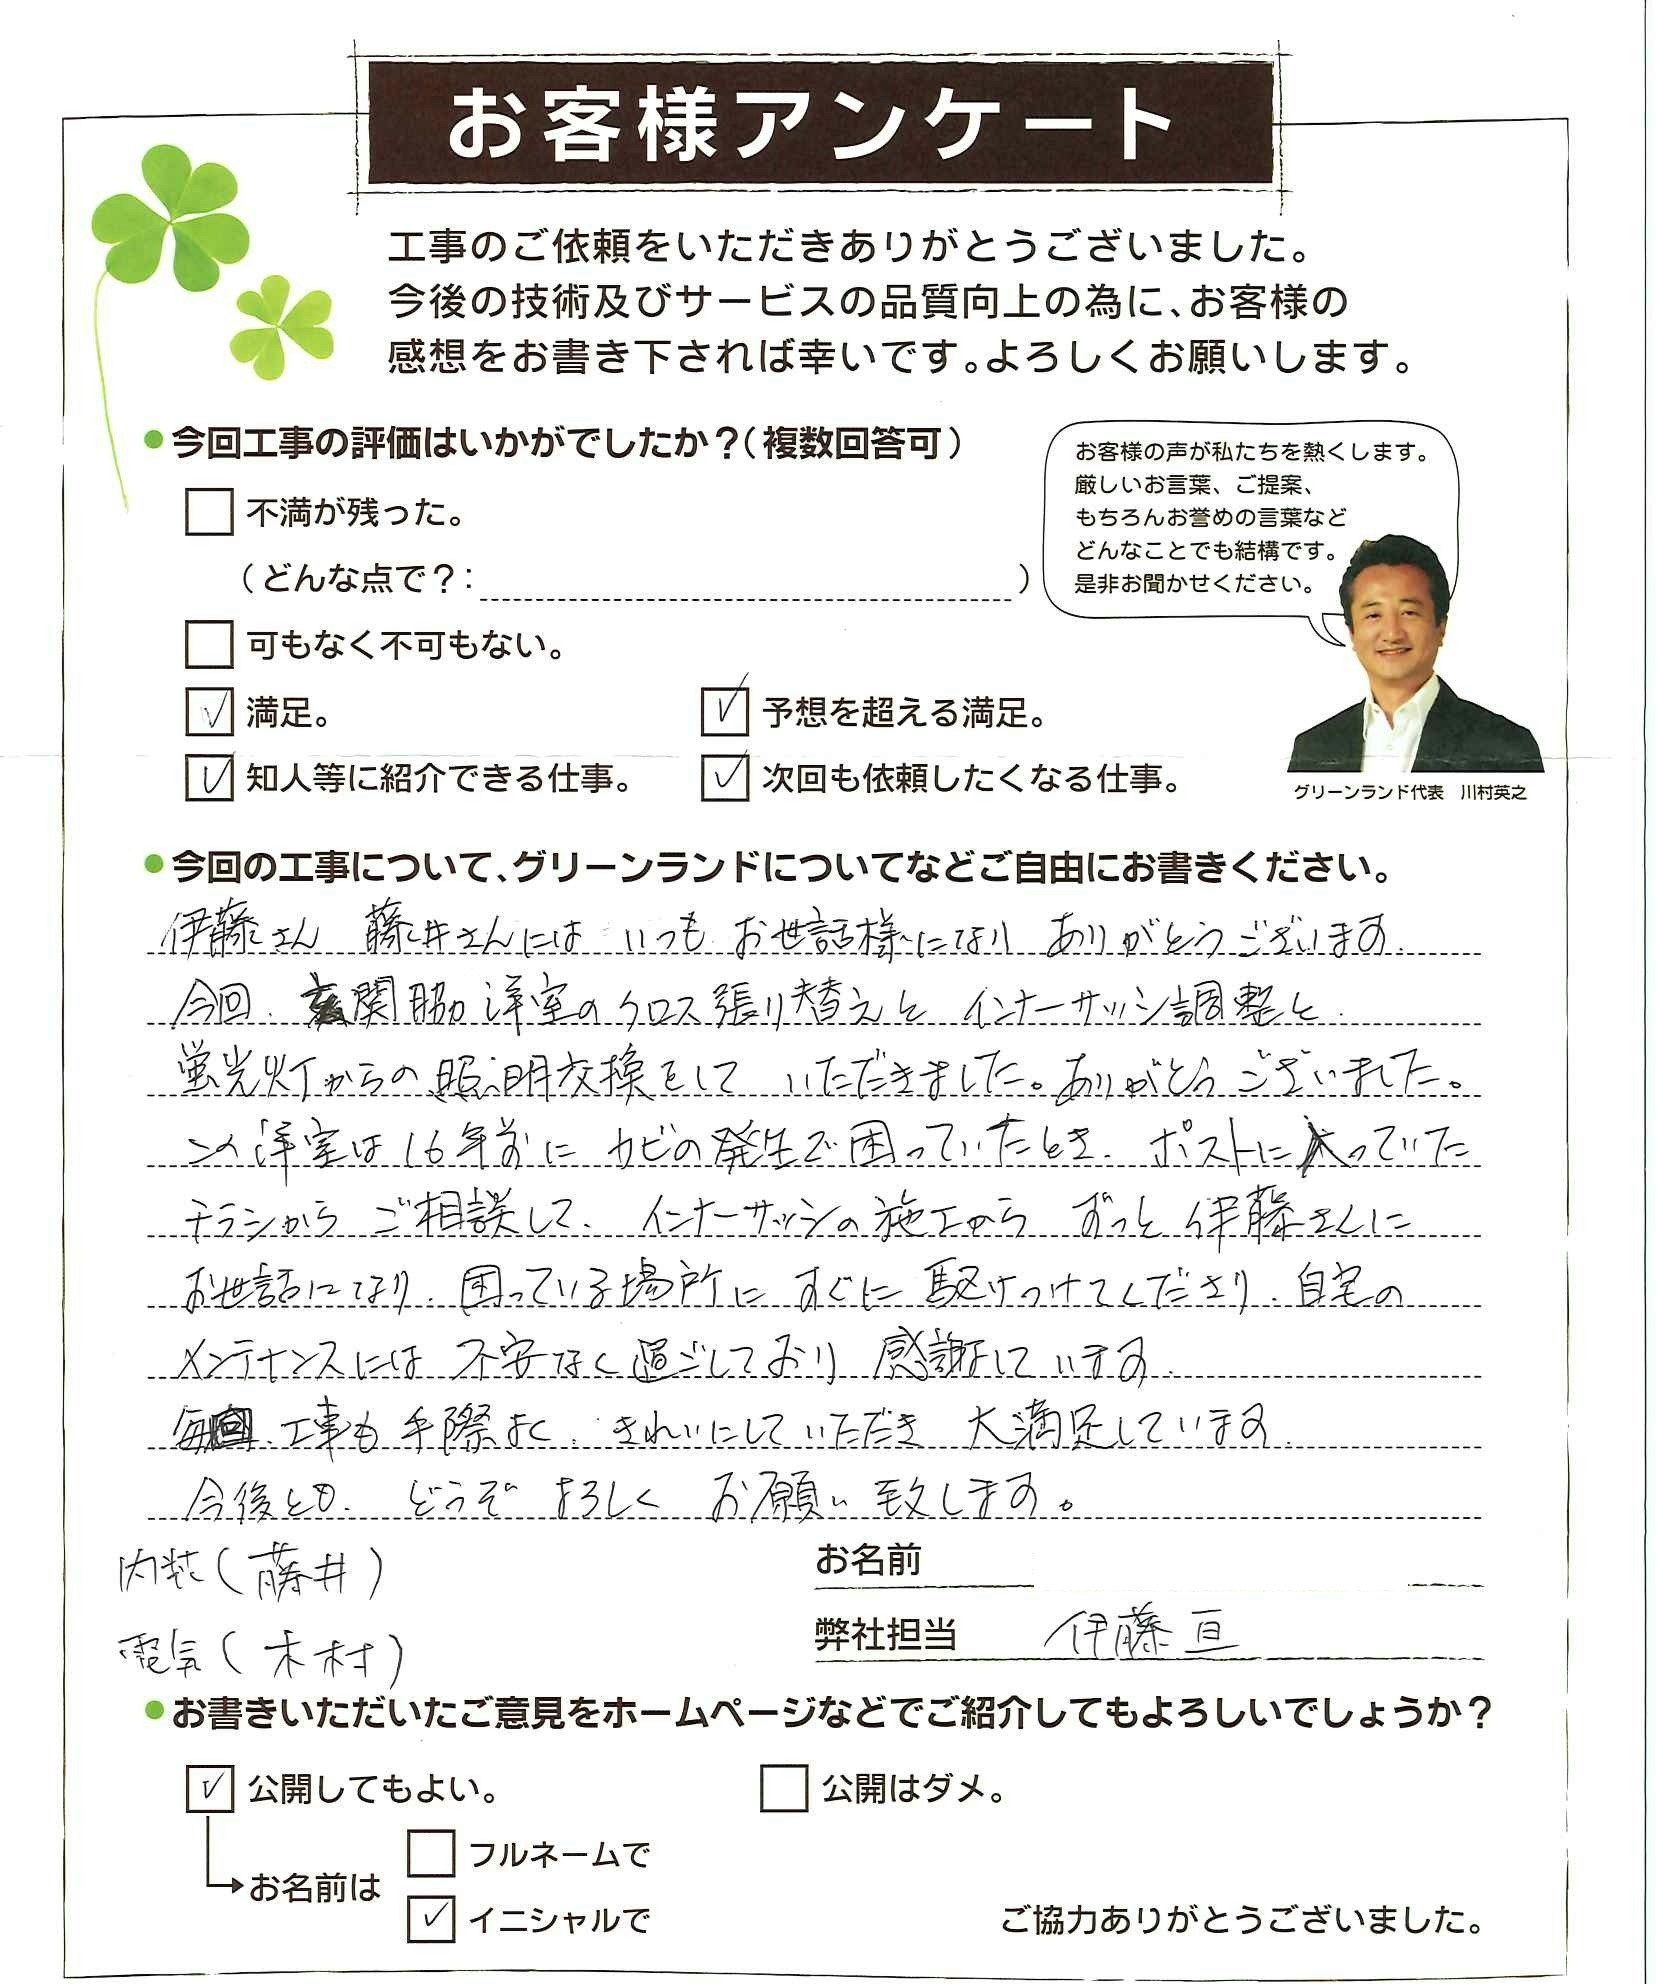 お客様アンケート
工事のご依頼をいただきありがとうございました。
今後の技術及びサービスの品質向上の為に、お客様の
感想をお書き下されば幸いです。よろしくお願いします。
●今回工事の評価はいかがでしたか？（複数回答可）
不満が残った。
（どんな点で？： ）
可もなく不可もない。
✓ 満足。
✓ 予想を超える満足。
✓ 知人等に紹介できる仕事。
✓ 次回も依頼したくなる仕事。
お客様の声が私たちを熱くします。
厳しいお言葉、ご提案、
もちろんお誉めの言葉など
どんなことでも結構です。
是非お聞かせください。
グリーンランド代表 川村英之
●今回の工事について、グリーンランドについてなどご自由にお書きください。
伊藤さん 藤井さんには いつも お世話様になり ありがとうございます.
今回、玄関脇洋室のクロス張り替えと インナーサッシ調整と、
蛍光灯からの照明交換をして いただきました。ありがとうございました。
この洋室は16年前に カビの発生で困っていたとき、ポストに入っていた
チラシから ご相談して、インナーサッシの施工から ずっと伊藤さんに
お世話になり、困っている場所に すぐに駆けつけてくださり、自宅の
メンテナンスには 不安なく過ごしており 感謝しています.
毎回、工事も手際よく、きれいにしていただき 大満足しています.
今後とも、どうぞ よろしく お願い致します。
内装（藤井）
電気（木村）
お名前
弊社担当 伊藤亘
●お書きいただいたご意見をホームページなどでご紹介してもよろしいでしょうか？
✓ 公開してもよい。
公開はダメ。
お名前は
フルネームで
✓ イニシャルで
ご協力ありがとうございました。